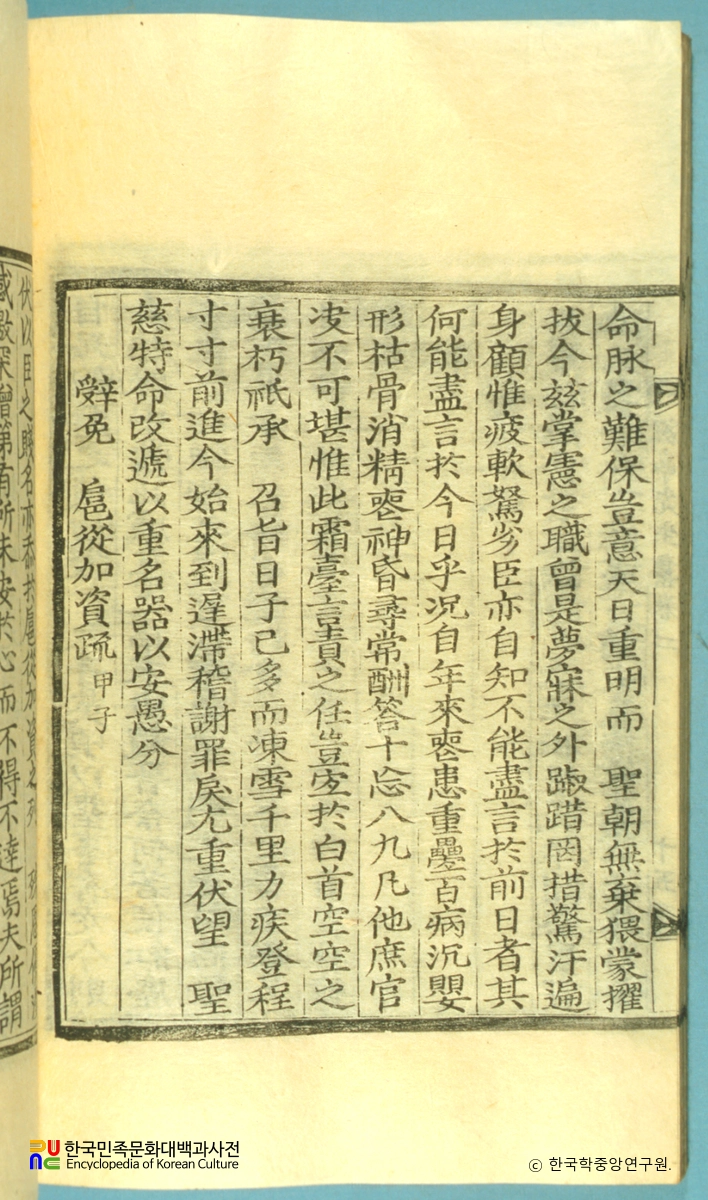 命脉之難保豈意天日重明而 聖朝無棄猥蒙擢
拔今玆掌憲之職曾是夢寐之外踧踖罔措驚汗遍
身顧惟疲軟駑劣臣亦自知不能盡言於前日者其
何能盡言於今日乎况自年來喪患重疊百病沉嬰
形枯骨消精喪神昏尋常酬答十忘八九凡他庶官
决不可堪惟此霜臺言責之任豈宜於白首空空之
衰朽祇承 召旨日子已多而凍雪千里力疾登程
寸寸前進今始來到遲滯稽謝罪戾尤重伏望 聖
慈特命改遞以重名器以安愚分
辭免 扈從加資疏甲子
伏以臣之賤名亦忝於扈從加資之列
感激深增第有所未安於心而不得不達焉夫所謂
한국민족문화대백과사전
Encyclopedia of Korean Culture
ⓒ 한국학중앙연구원.